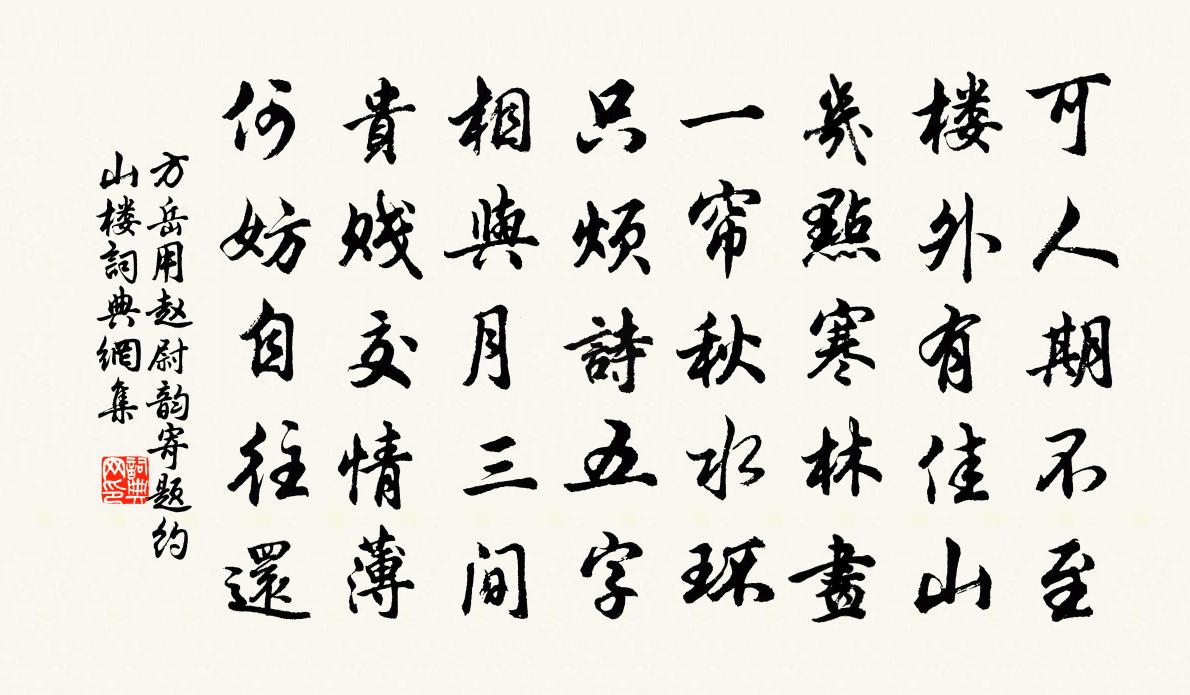 可人期不至
楼外有佳山
幾點寒林畫
一帘秋水环
只烦詩五字
相與月三间
貴賤交情薄
何妨自往還
方岳用赵尉韵寄题约
山楼詞典網集
詞典网印